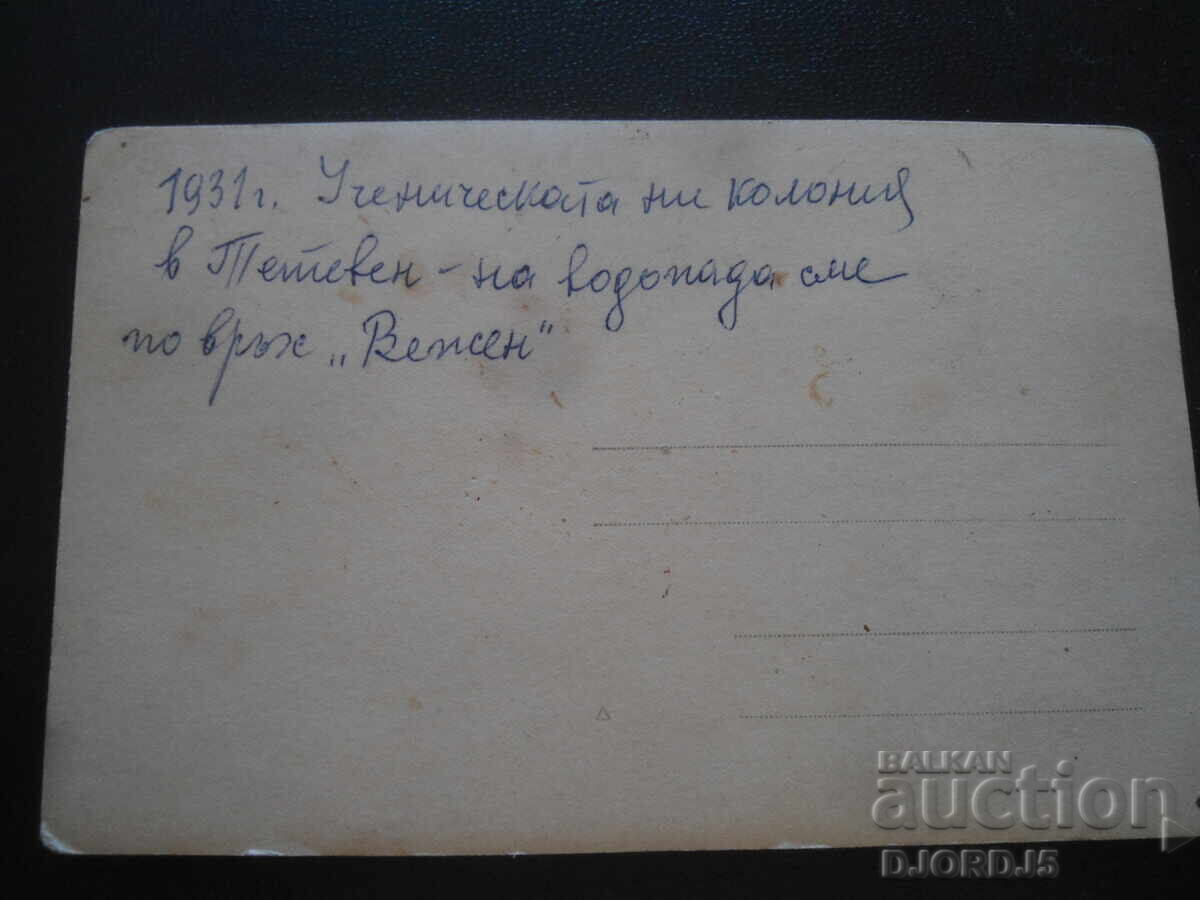 1931г. Ученическата ни колония
в Тетевен - на водопада сме
по връх „Вежен"
BALKAN
auction
DJORDJ5